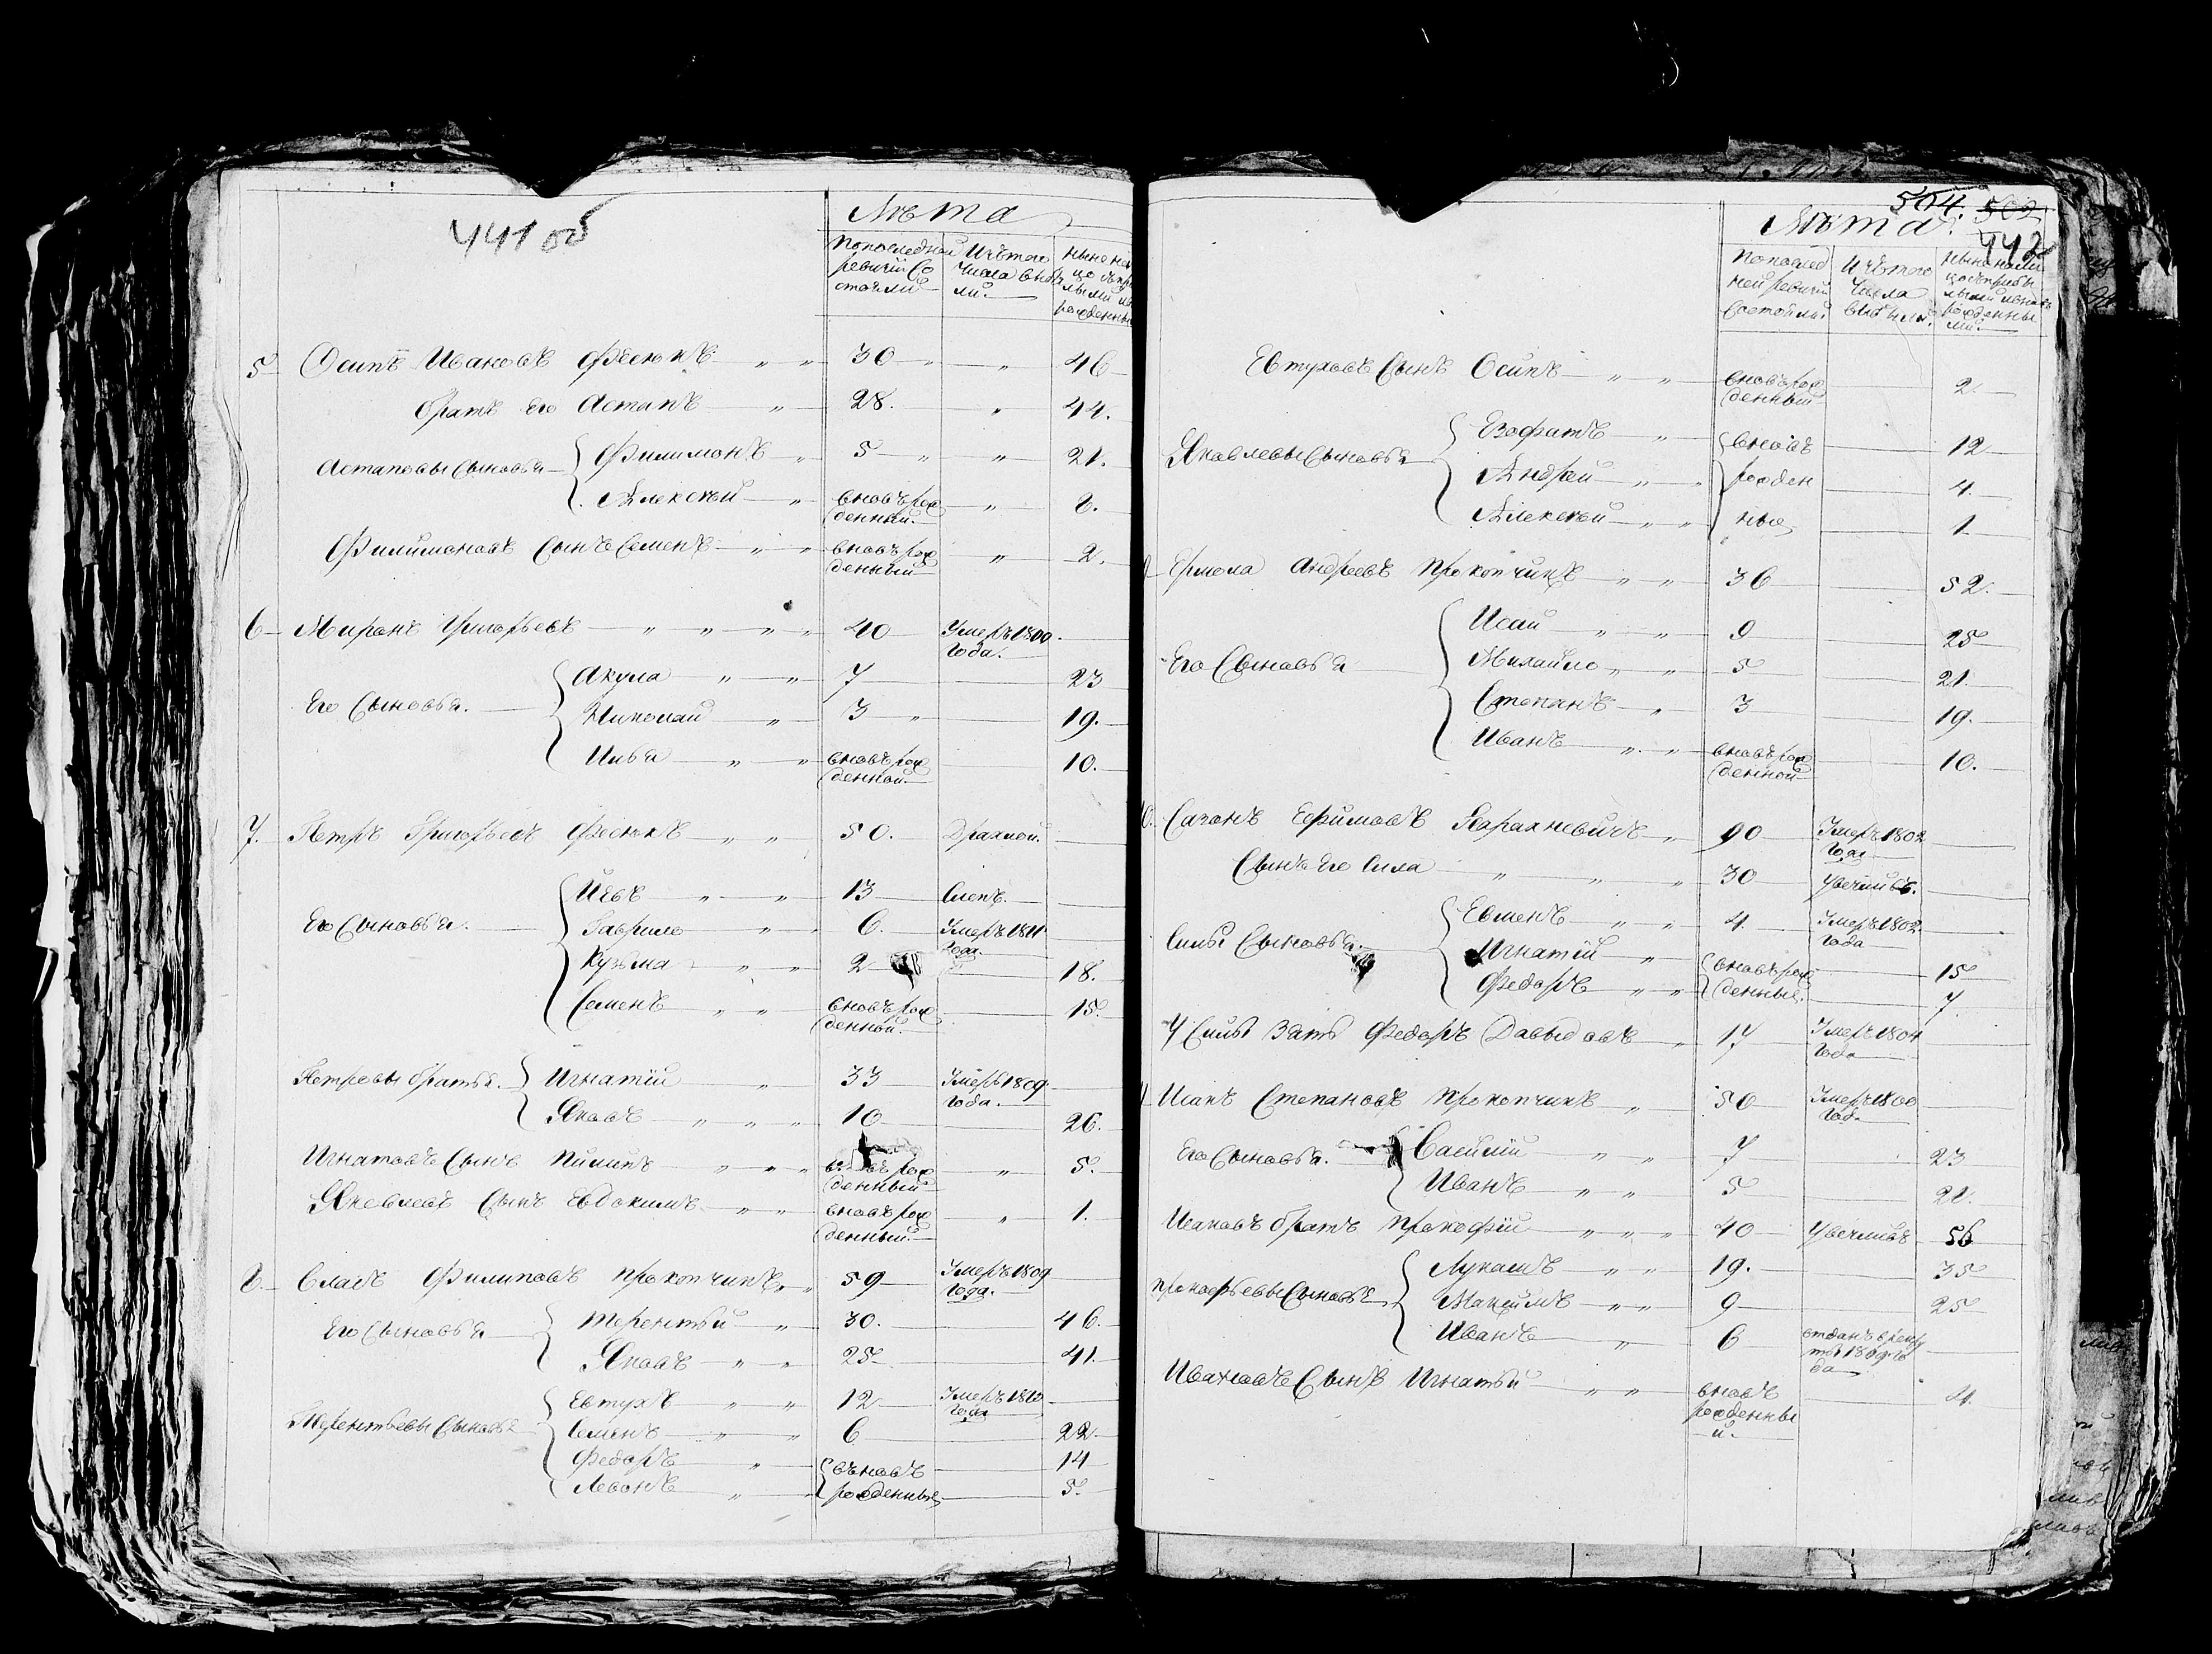 441 об
Лѣта
По последней Изъ того Ныне на
ревизіи Со числа выбы цо съ при
стояли ли. лыми и
рожденны
5 Осипъ Ивановъ Фесюкъ 30 46
братъ его Астапъ 28. 44.
Астаповы Сыновья Филимонъ 5 21.
Алексѣй вновь рож 8.
денный.
Филимоновъ Сынъ Семенъ вновь рож 2.
денный
6 Миронъ Григорьевъ 40 Умеръ 1800
года.
Его Сыновья. Акула 7 23
Николай 3 19.
Илья вновь рож 10.
денной.
7. Петръ Григорьевъ Фесюкъ 50. Драхлой.
Его Сыновья. Иевъ 13 Слепъ.
Гаврило 6. Умеръ 1811
года.
Кузьма 2 18.
Семенъ вновь рож 15.
денной.
Петровы братья. Игнатій 33 Умеръ 1809
года.
Яковъ 10 26.
Игнатовъ Сынъ Пилипъ рож 5.
денный
Яковлевъ Сынъ Евдокимъ вновь рож 1.
денный.
8. Власъ Филиповъ Прокопчикъ 59 Умеръ 1809
года.
Его Сыновья Терентѣй 30. 46.
Яковъ 25 41.
Терентьевы Сыновья Евтухъ 12 Умеръ 1812
года
Семенъ 6 22.
Федоръ въновь 14
Левонъ рожденные 5.
504. 502
Лѣта. 442
По послед Изъ того Ныне нали
ней ревизіи числа цо съ прибы
состояли выбыли. лыми и вновь
рожденны
ми.
Евтуховъ Сынъ Осипъ вновь рож 2
денный
Яковлевы Сыновья Езофатъ вновь 12
Андрей рожден 4.
Алексѣй ные 1
Ермола Андреевъ Прокопчикъ 36 52.
Его Сыновья Исай 9 25
Михайло 5 21.
Степанъ 3 19.
Иванъ вновь рож 10.
денной
0. Сапонъ Ефимовъ Карахневичъ 90 Умеръ 1802
года
Сынъ его Сила 30 увечливъ.
Силы Сыновья. Евменъ 4 Умеръ 1802
года
Игнатій вновь рож 15
Федоръ денные. 7
У Силы Зать Федоръ Давыдовъ 17 Умеръ 1804
года
Исакъ Степановъ Прокопчикъ 50 Умеръ 1800
года
Его Сыновья. Василій 7 23
Иванъ 5 21.
Исаковъ братъ Прокофій 40 Увечливъ 56
Прокофьевы Сыновья Лукашъ 19. 35
Максимъ 9 25
Иванъ 6 отданъ в рекру
ты 1809 го
да
Ивановъ Сынъ Игнатѣй вновь 4.
рожденны
й.